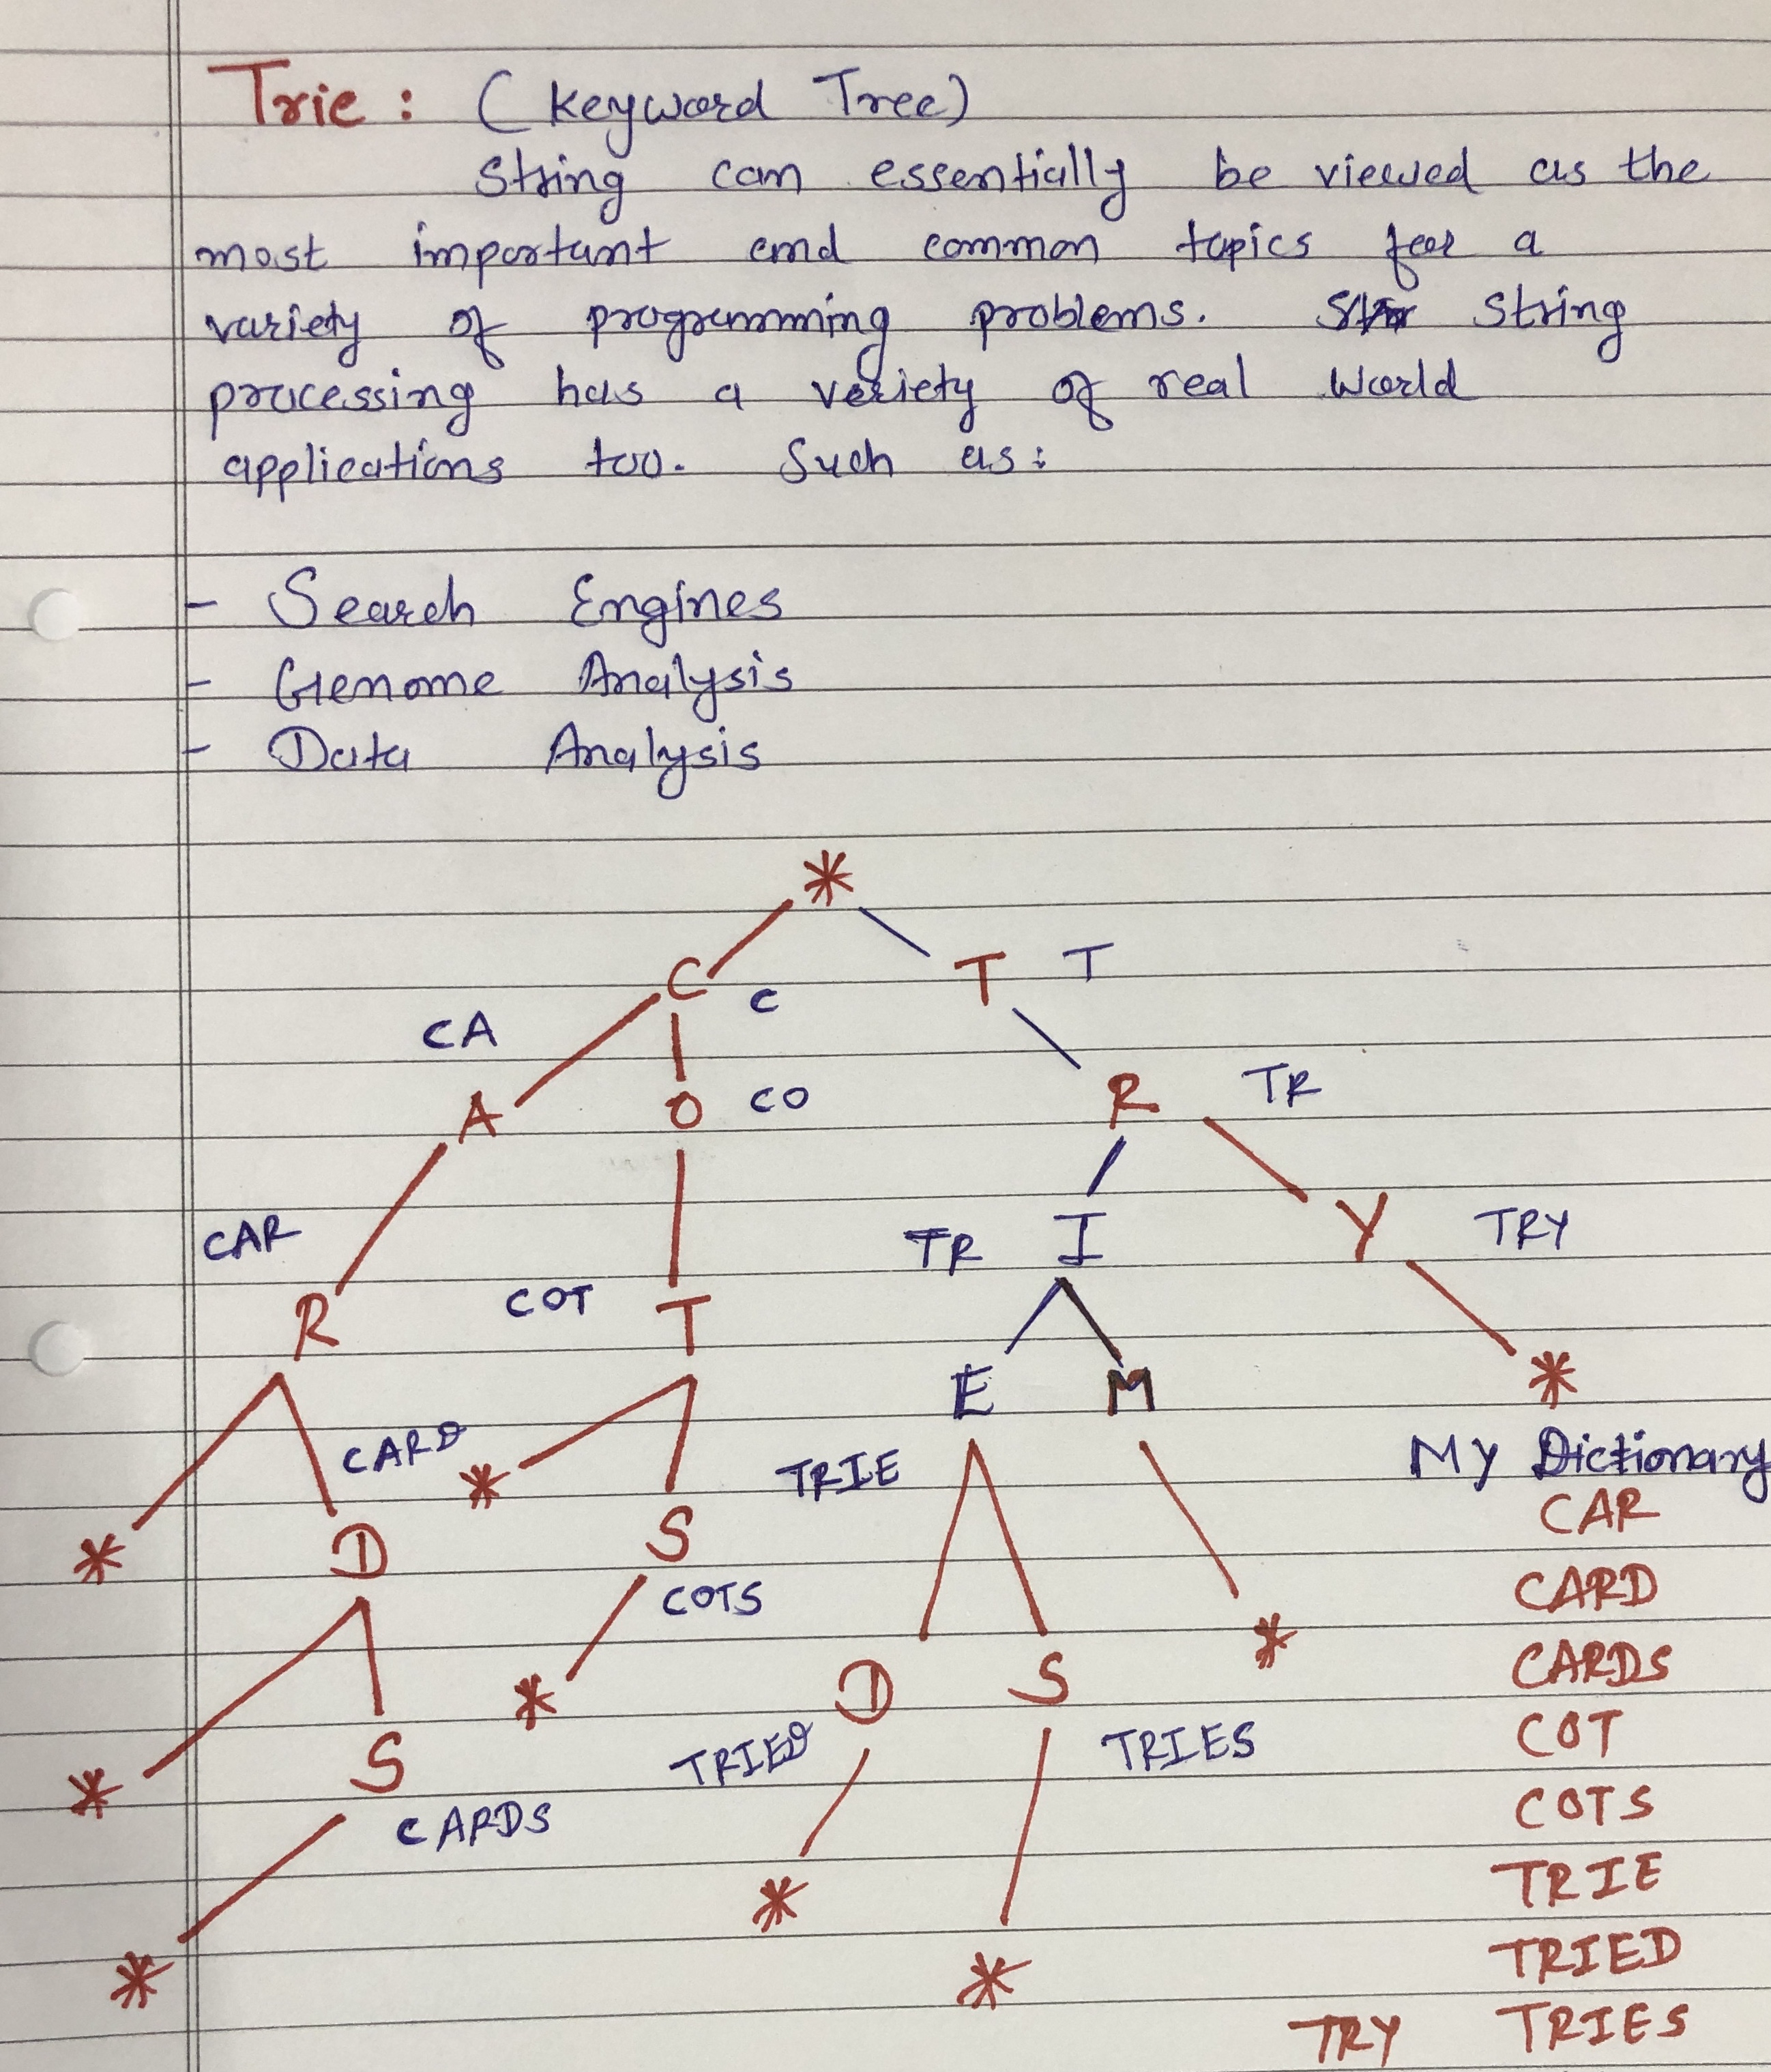 Trie : (Keyword Tree)
String can essentially be viewed as the
most important and common topics for a
variety of programming problems. String
processing has a variety of real world
applications too. Such as:
- Search Engines
- Genome Analysis
- Data Analysis
*
C C T T
CA
A O CO R TR
CAR TR I Y TRY
R COT T
E M *
CARD * TRIE My Dictionary
CAR
* D S CARD
COTS
* CARDS
* D S
COT
TRIED TRIES
* S
CARDS COTS
* TRIE
TRIED
* *
TRY TRIES